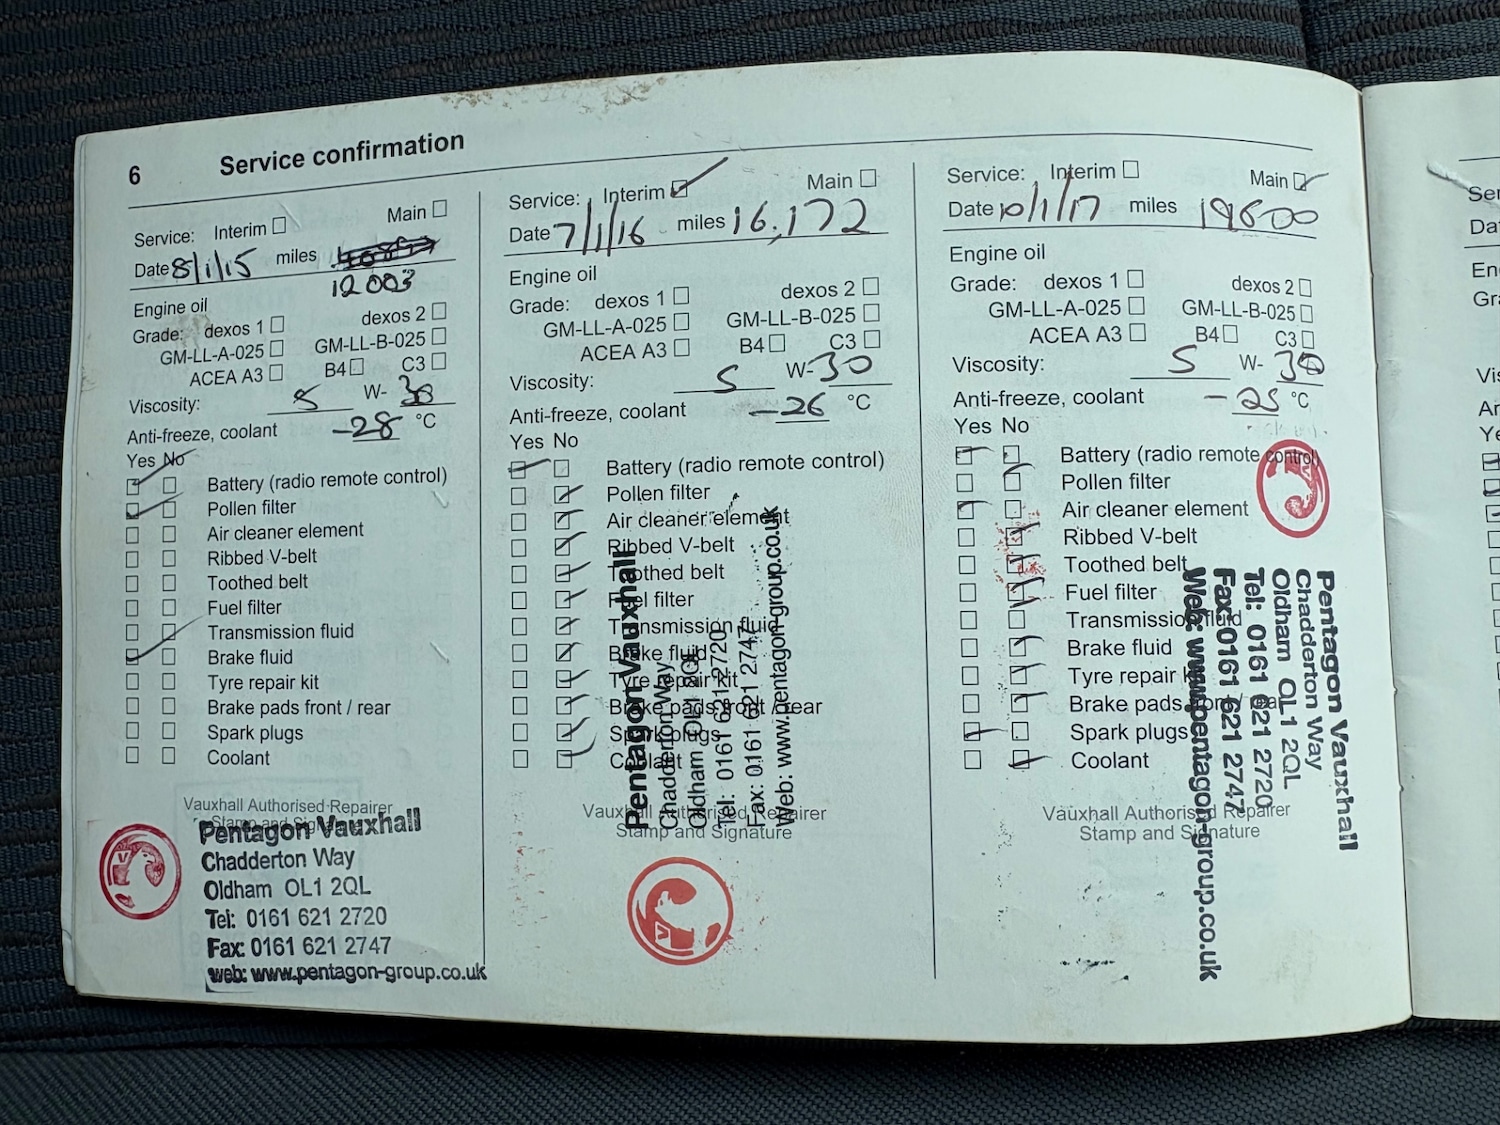 6 Service confirmation
Service: Interim Main
Date 8/1/15 miles
12003
Engine oil
Grade: dexos 1 dexos 2
GM-LL-A-025 GM-LL-B-025
ACEA A3 B4 C3
Viscosity: 5 W- 30
Anti-freeze, coolant -28 °C
Yes No
Battery (radio remote control)
Pollen filter
Air cleaner element
Ribbed V-belt
Toothed belt
Fuel filter
Transmission fluid
Brake fluid
Tyre repair kit
Brake pads front / rear
Spark plugs
Coolant
Vauxhall Authorised Repairer
Stamp and Signature
Pentagon Vauxhall
Chadderton Way
Oldham OL1 2QL
Tel: 0161 621 2720
Fax: 0161 621 2747
web: www.pentagon-group.co.uk
Service: Interim Main
Date 7/1/16 miles 16,172
Engine oil
Grade: dexos 1 dexos 2
GM-LL-A-025 GM-LL-B-025
ACEA A3 B4 C3
Viscosity: 5 W- 30
Anti-freeze, coolant -26 °C
Yes No
Battery (radio remote control)
Pollen filter
Air cleaner element
Ribbed V-belt
Toothed belt
Fuel filter
Transmission fluid
Brake fluid
Tyre repair kit
Brake pads front / rear
Spark plugs
Coolant
Vauxhall Authorised Repairer
Stamp and Signature
Pentagon Vauxhall
Chadderton Way
Oldham OL1 2QL
Tel: 0161 621 2720
Fax: 0161 621 2747
Web: www.pentagon-group.co.uk
Service: Interim Main
Date 10/1/17 miles 19600
Engine oil
Grade: dexos 1 dexos 2
GM-LL-A-025 GM-LL-B-025
ACEA A3 B4 C3
Viscosity: 5 W- 30
Anti-freeze, coolant -25 °C
Yes No
Battery (radio remote control)
Pollen filter
Air cleaner element
Ribbed V-belt
Toothed belt
Fuel filter
Transmission fluid
Brake fluid
Tyre repair kit
Brake pads front / rear
Spark plugs
Coolant
Vauxhall Authorised Repairer
Stamp and Signature
Pentagon Vauxhall
Chadderton Way
Oldham OL1 2QL
Tel: 0161 621 2720
Fax: 0161 621 2747
Web: www.pentagon-group.co.uk